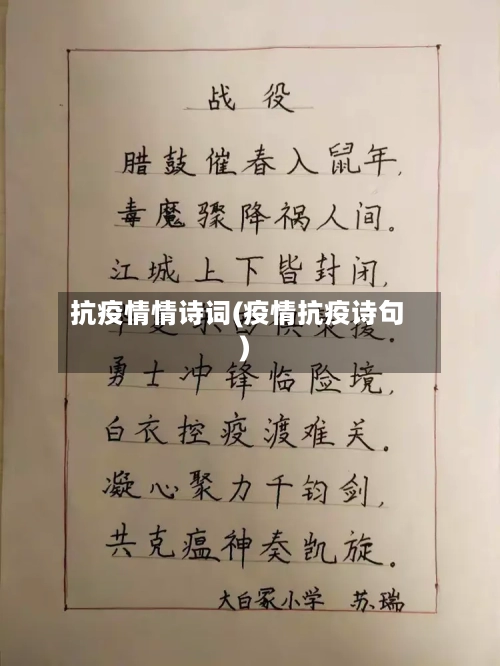 战役
腊鼓催春入鼠年,
毒魔骤降祸人间。
江城上下皆封闭,
抗疫情情诗词(疫情抗疫诗句
)
勇士冲锋临险境,
白衣控疫渡难关。
凝心聚力千钧剑,
共克瘟神奏凯旋。
大白冢小学 苏瑞